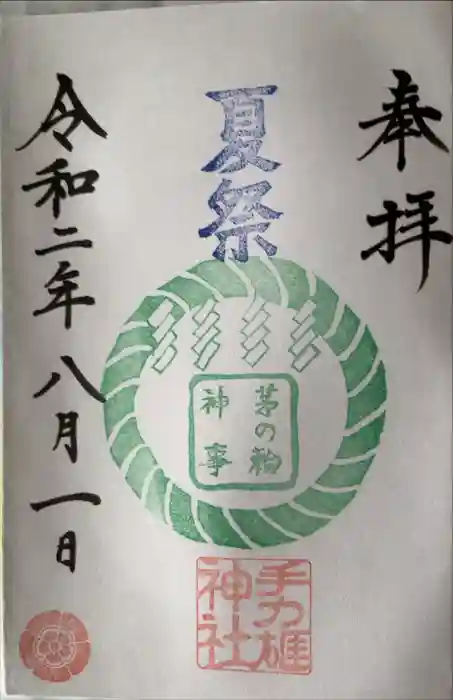 奉拝
夏祭
茅の輪
神事
手力雄
神社
令和二年八月一日